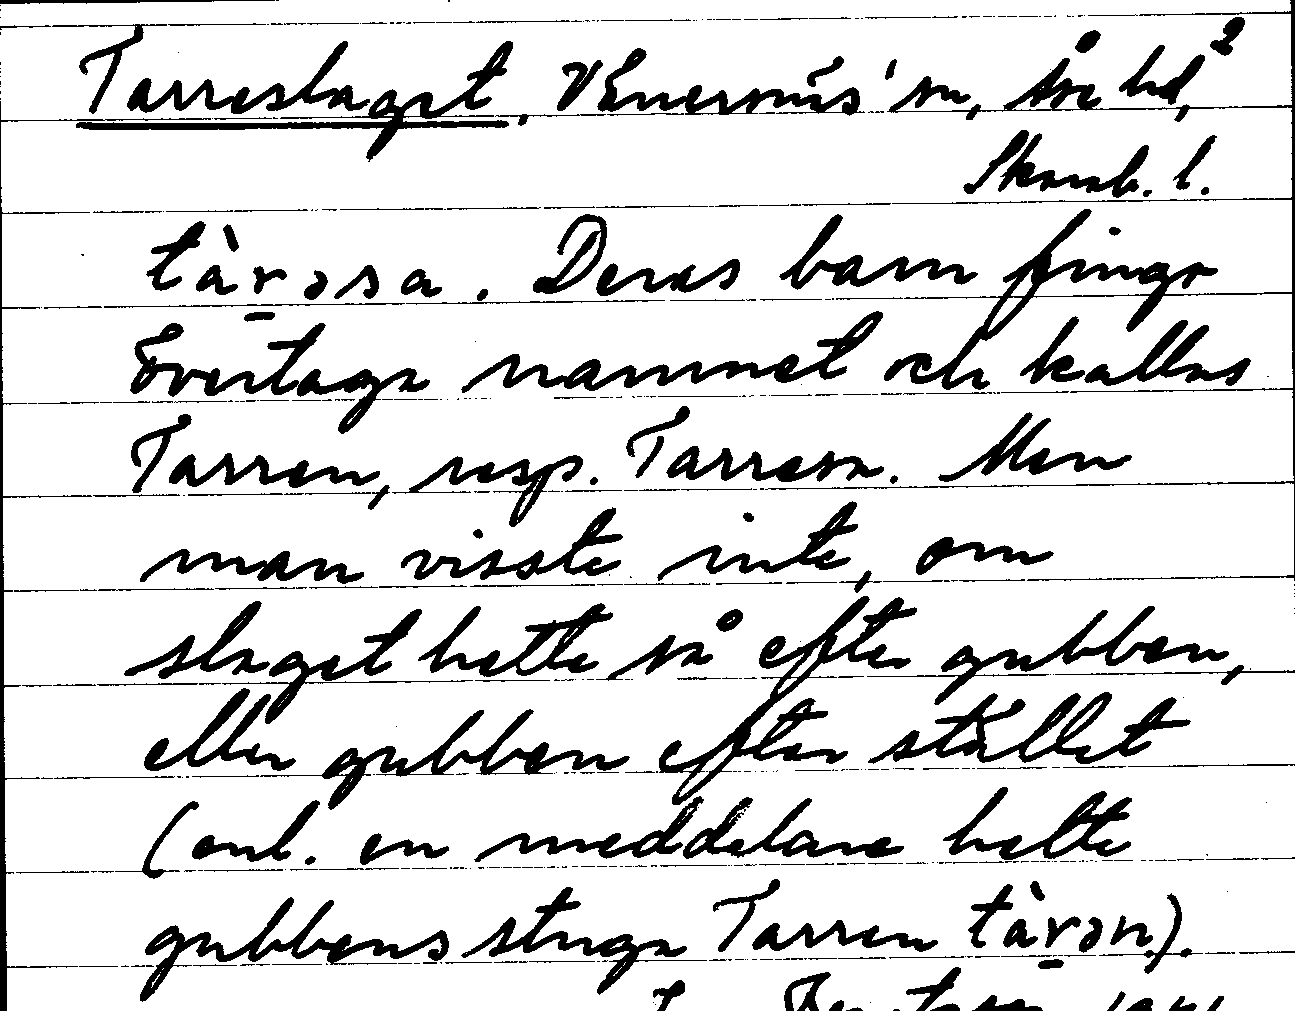 Tarreslaget, Vänersnäs sn, Åse hd, 2
Skarab. l.
tàrəsa. Deras barn fingo
övertaga namnet och kallas
Tarren, resp. Tarresa. Men
man visste inte, om
slaget hette så efter gubben,
eller gubben efter stället
(enl. en meddelare hette
gubbens stuga Tarren tàrən).